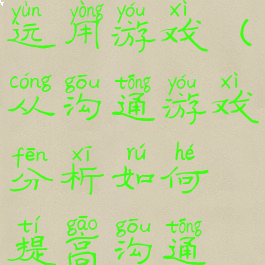 yùn yòng yóu xì
运用游戏（
cóng gōu tōng yóu xì
从沟通游戏
fēn xī rú hé
分析如何
tí gāo gōu tōng
提高沟通